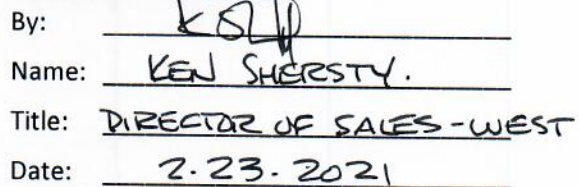 By:
Name: KEN SHERSTY.
Title: DIRECTOR OF SALES-WEST
Date: 2.23.2021